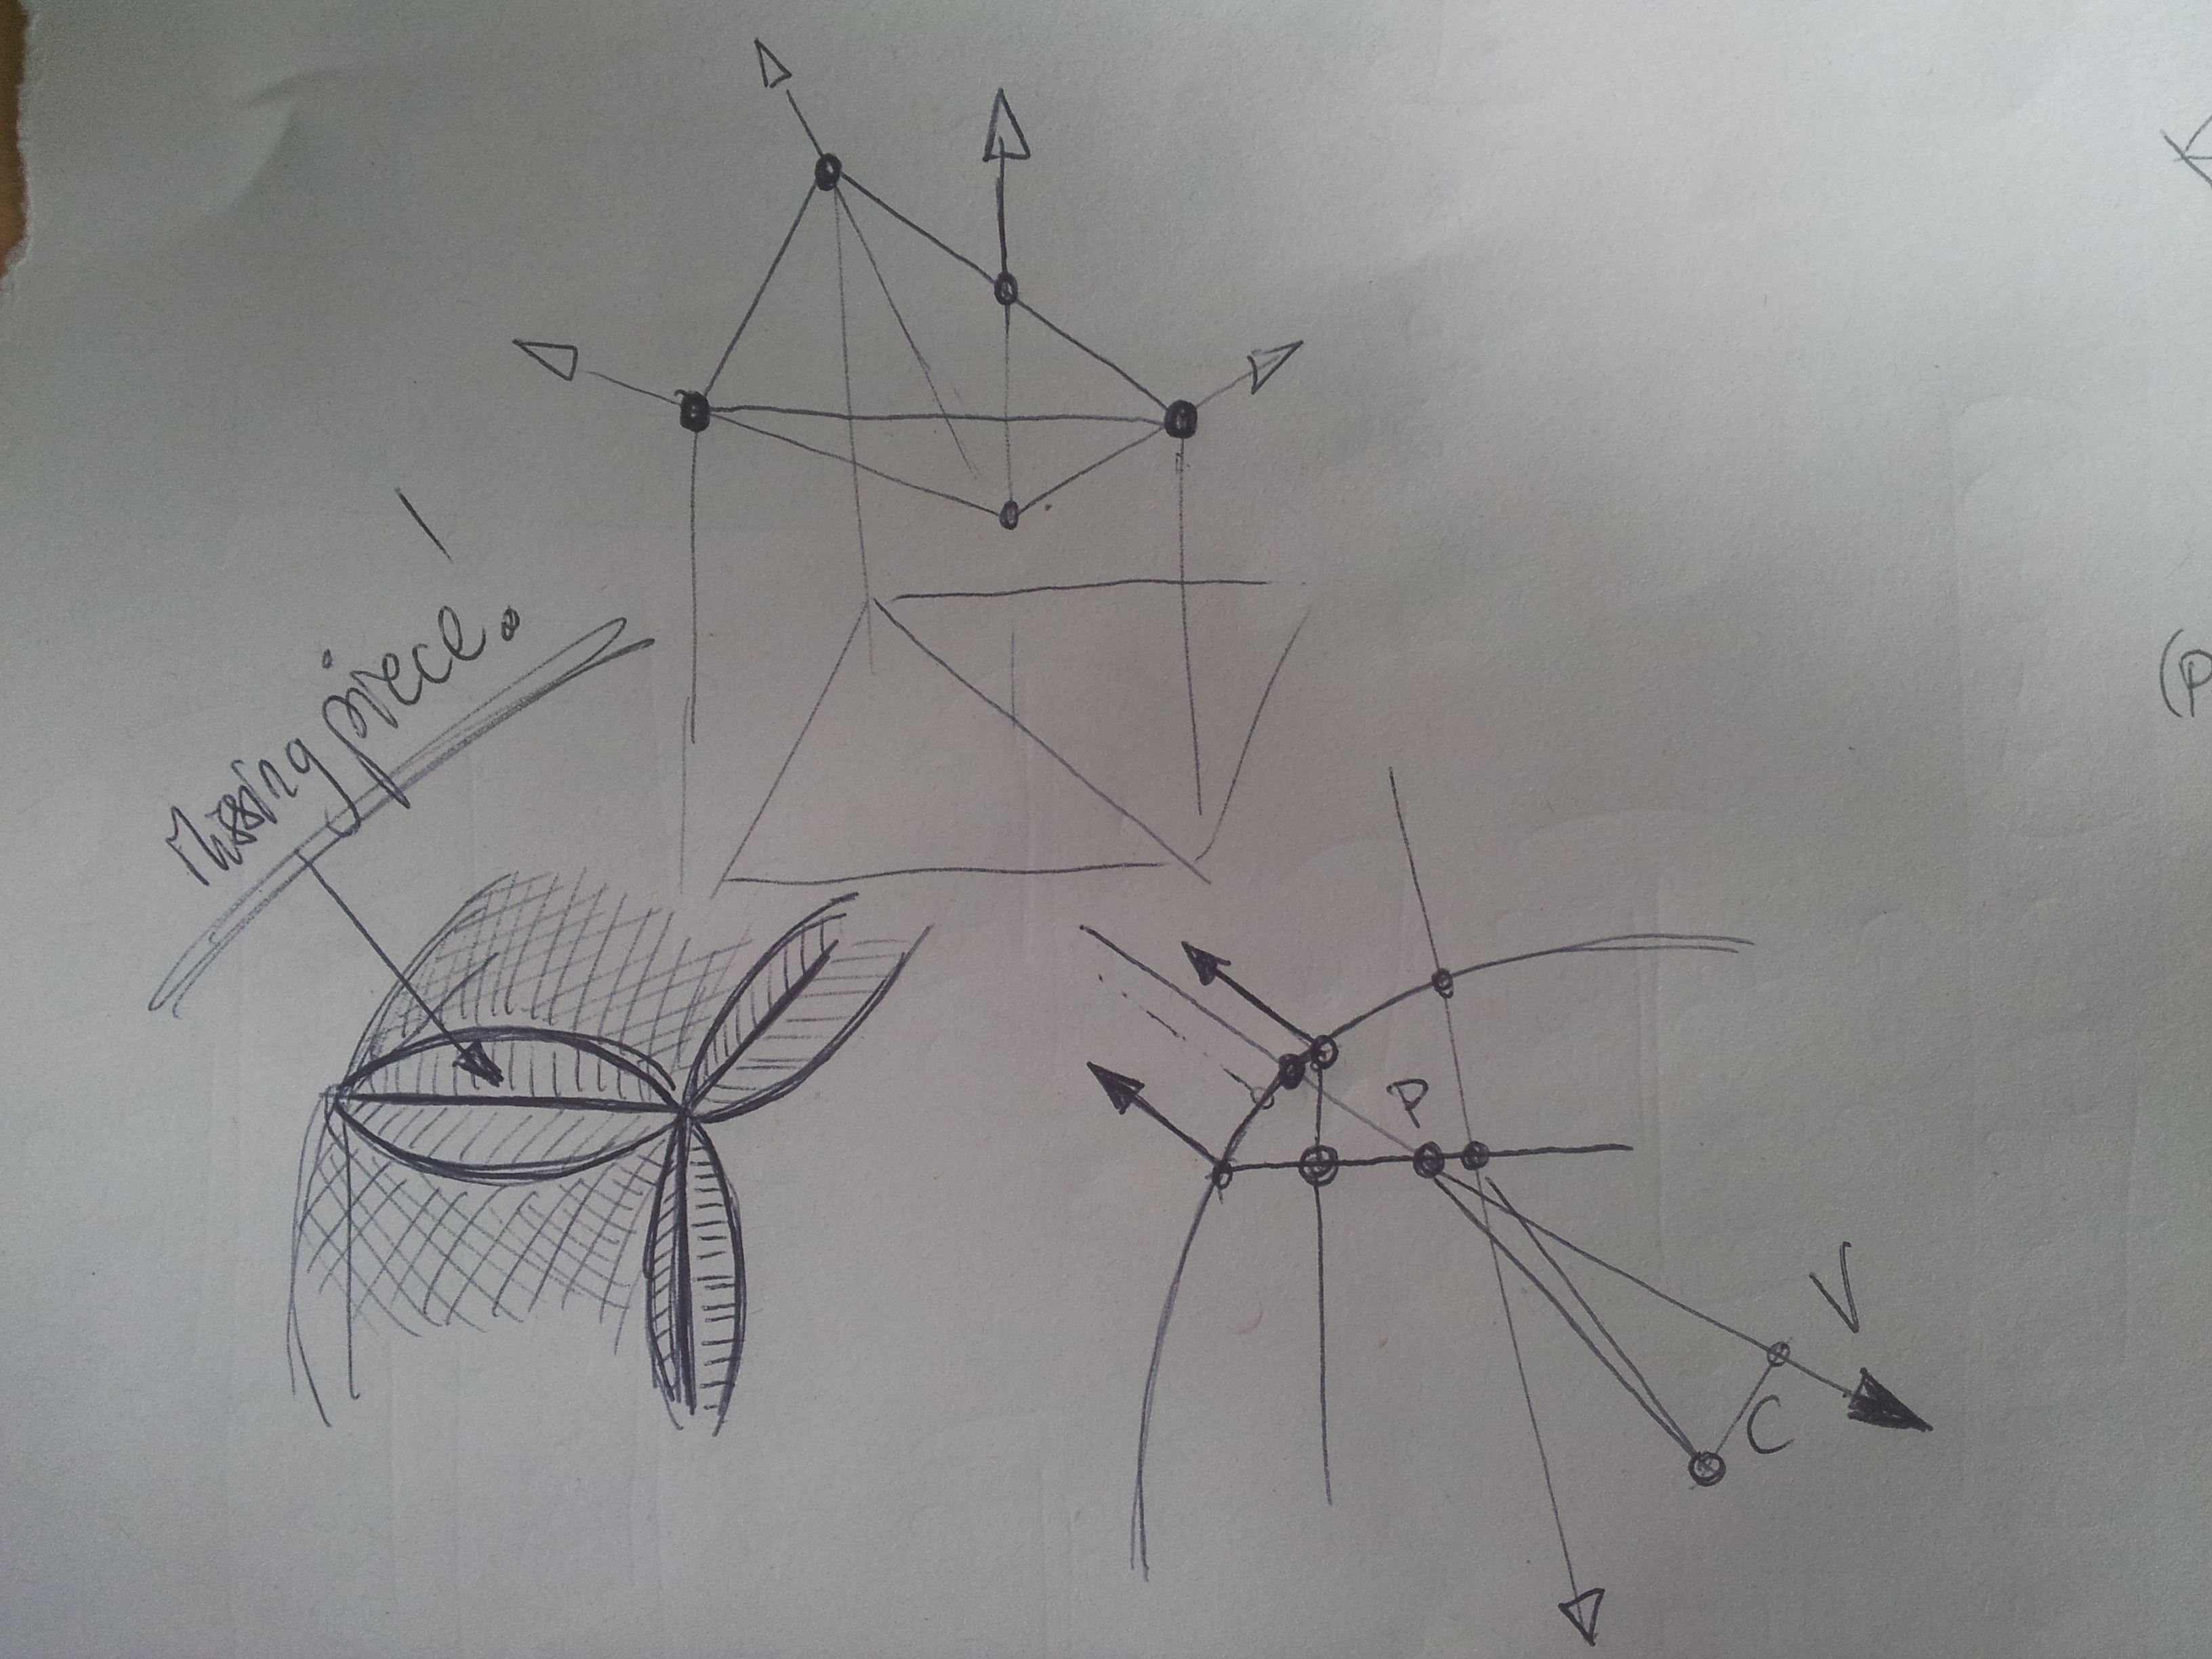 Missing piece!
P
V
C
(P